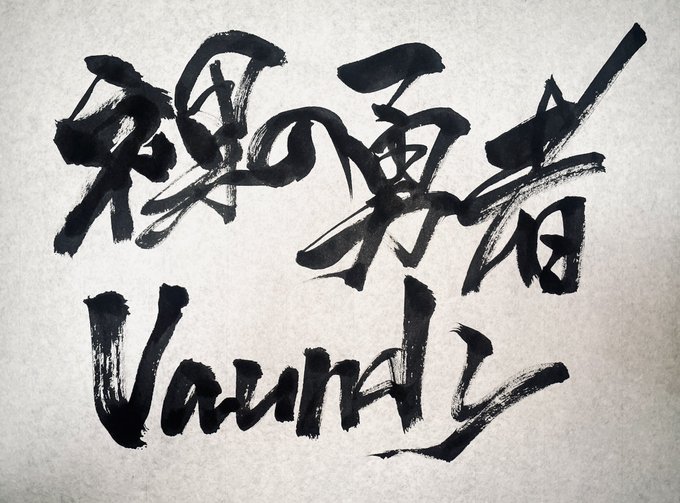 裸の勇者
Vaundy